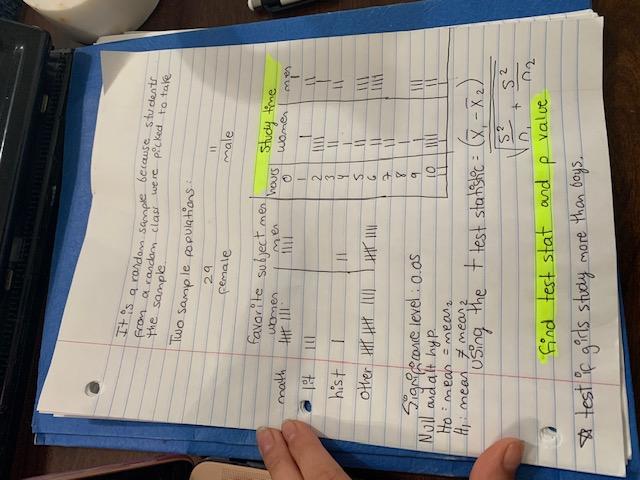 It is a random sample because students
from a random class were picked to take
the sample.
Two sample populations:
29 11
female male
Favorite subject
women men
math
lit
hist
other
Study time
hours women men
0
1
2
3
4
5
6
7
8
9
10
Significance level: 0.05
Null and alt hyp.
H0: mean = mean2
H1: mean ≠ mean2
using the t test statistic = (x̄1 - x̄2)
√ s²/n1 + s²/n2
Find test stat and p value
test if girls study more than boys.